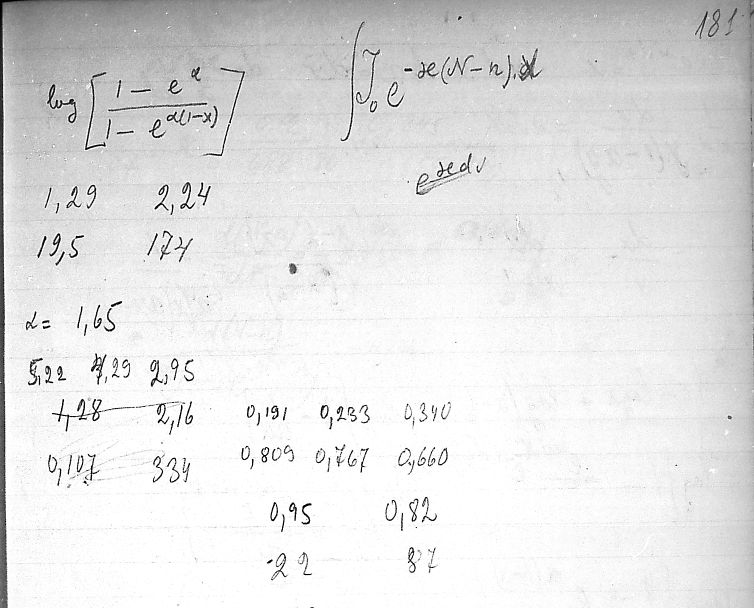 181
log [ (1 - e^α) / (1 - e^α(1-x)) ] ∫ J₀ e^-æ(N-n)
1,29 2,24
19,5 174
α = 1,65
5,22 7,29 2,95
1,28 2,16 0,191 0,233 0,340
0,107 334 0,809 0,767 0,660
0,95 0,82
-22 87